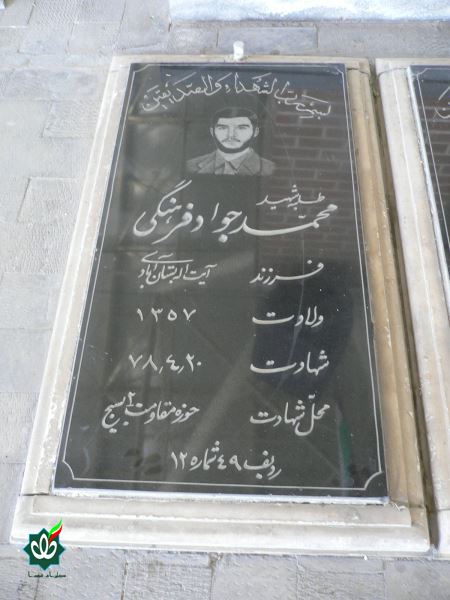 بسم رب الشهداء و الصدیقین
طلبه شهید
محمد جواد فرهنگی
فرزند آیت الله بستان آبادی
ولادت ۱۳۵۷
شهادت ۷۸٫۴٫۲۰
محل شهادت حوزه مقاومت ۲ بسیج
ردیف ۴۹ شماره ۱۲